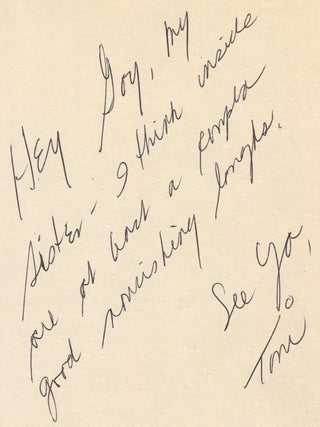 Hey Goy, my
sister - I think inside
are at least a coupla
good nourishing laughs.
See Ya,
Toni